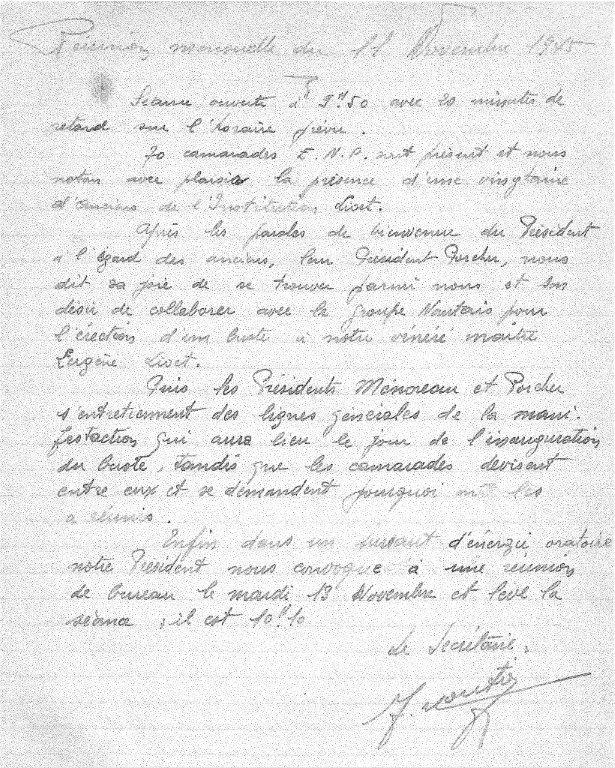 Réunion mensuelle du 11 Novembre 1945
Séance ouverte à 9H50 avec 20 minutes de
retard sur l'horaire prévu.
70 camarades E.N.P. sont présent et nous
notons avec plaisir la présence d'une vingtaine
d'anciens de l'Institution Livet.
Après les paroles de bienvenue du Président
à l'égard des anciens, leur Président Porcher, nous
dit sa joie de se trouver parmi nous et son
désir de collaborer avec le groupe Nantais pour
l'érection d'un buste à notre vénéré maître
Eugène Livet.
Puis les Présidents Ménoreau et Porcher
s'entretiennent des lignes générales de la mani-
festaction qui aura lieu le jour de l'inauguration
du buste, tandis que les camarades devisent
entre eux et se demandent pourquoi les
a réunis.
Enfin dans un sursaut d'énergie oratoire
notre Président nous convoque à une réunion
de bureau le mardi 13 Novembre et lève la
séance ; il est 10H10
Le Secrétaire.